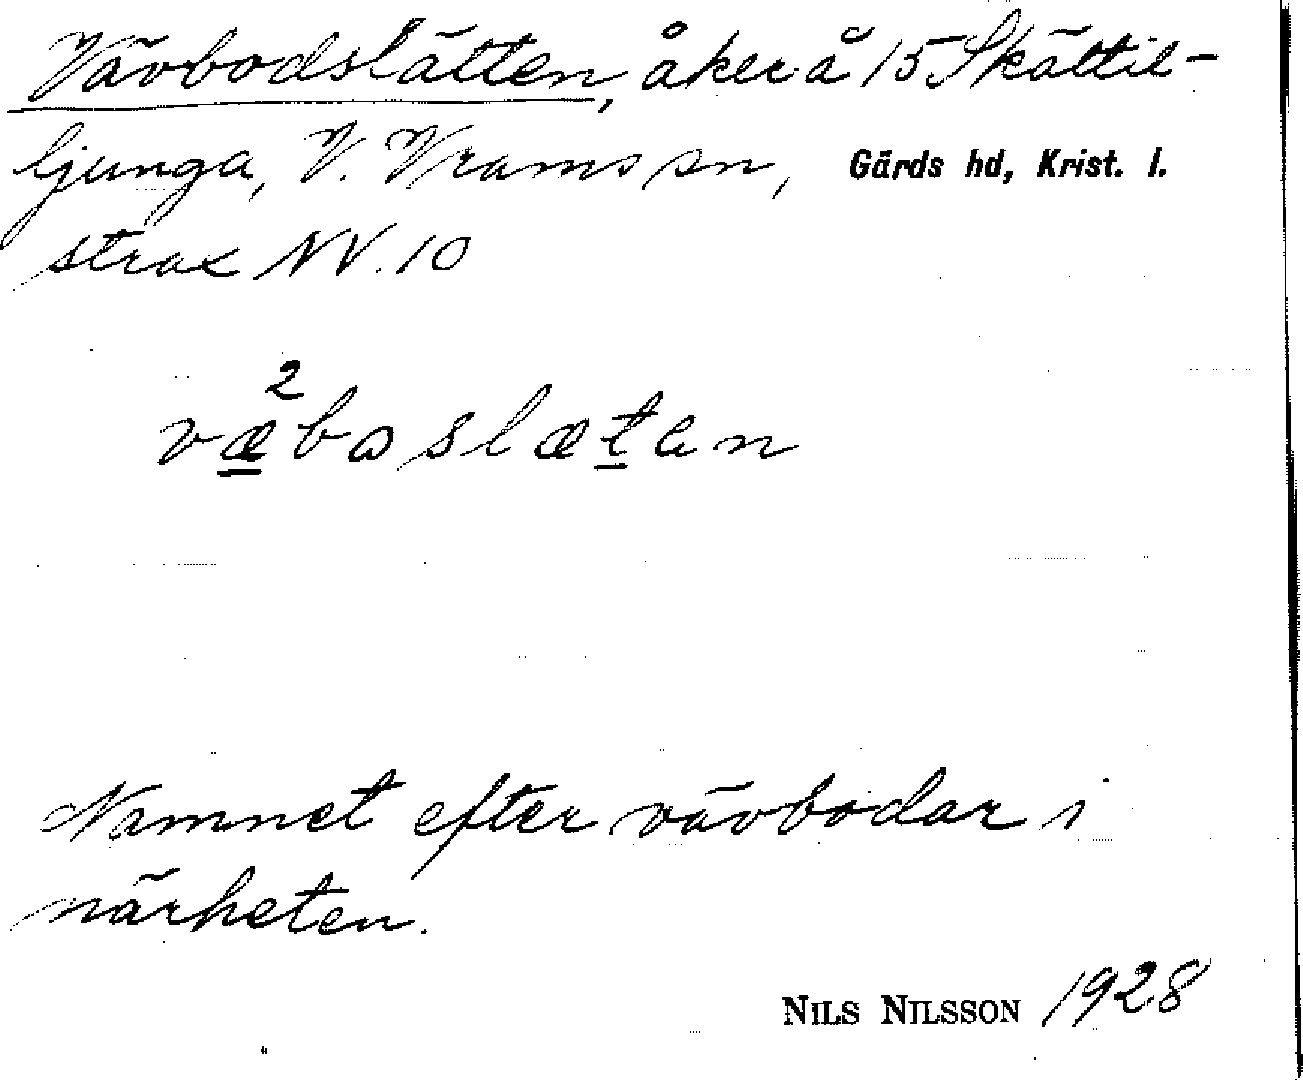 Vävbodslätten, åker å 15 Skättil-
ljunga, V. Vrams sn, Gärds hd, Krist. l.
strax NV. 10
2
væboslæten
Namnet efter vävbodar i
närheten.
NILS NILSSON 1928